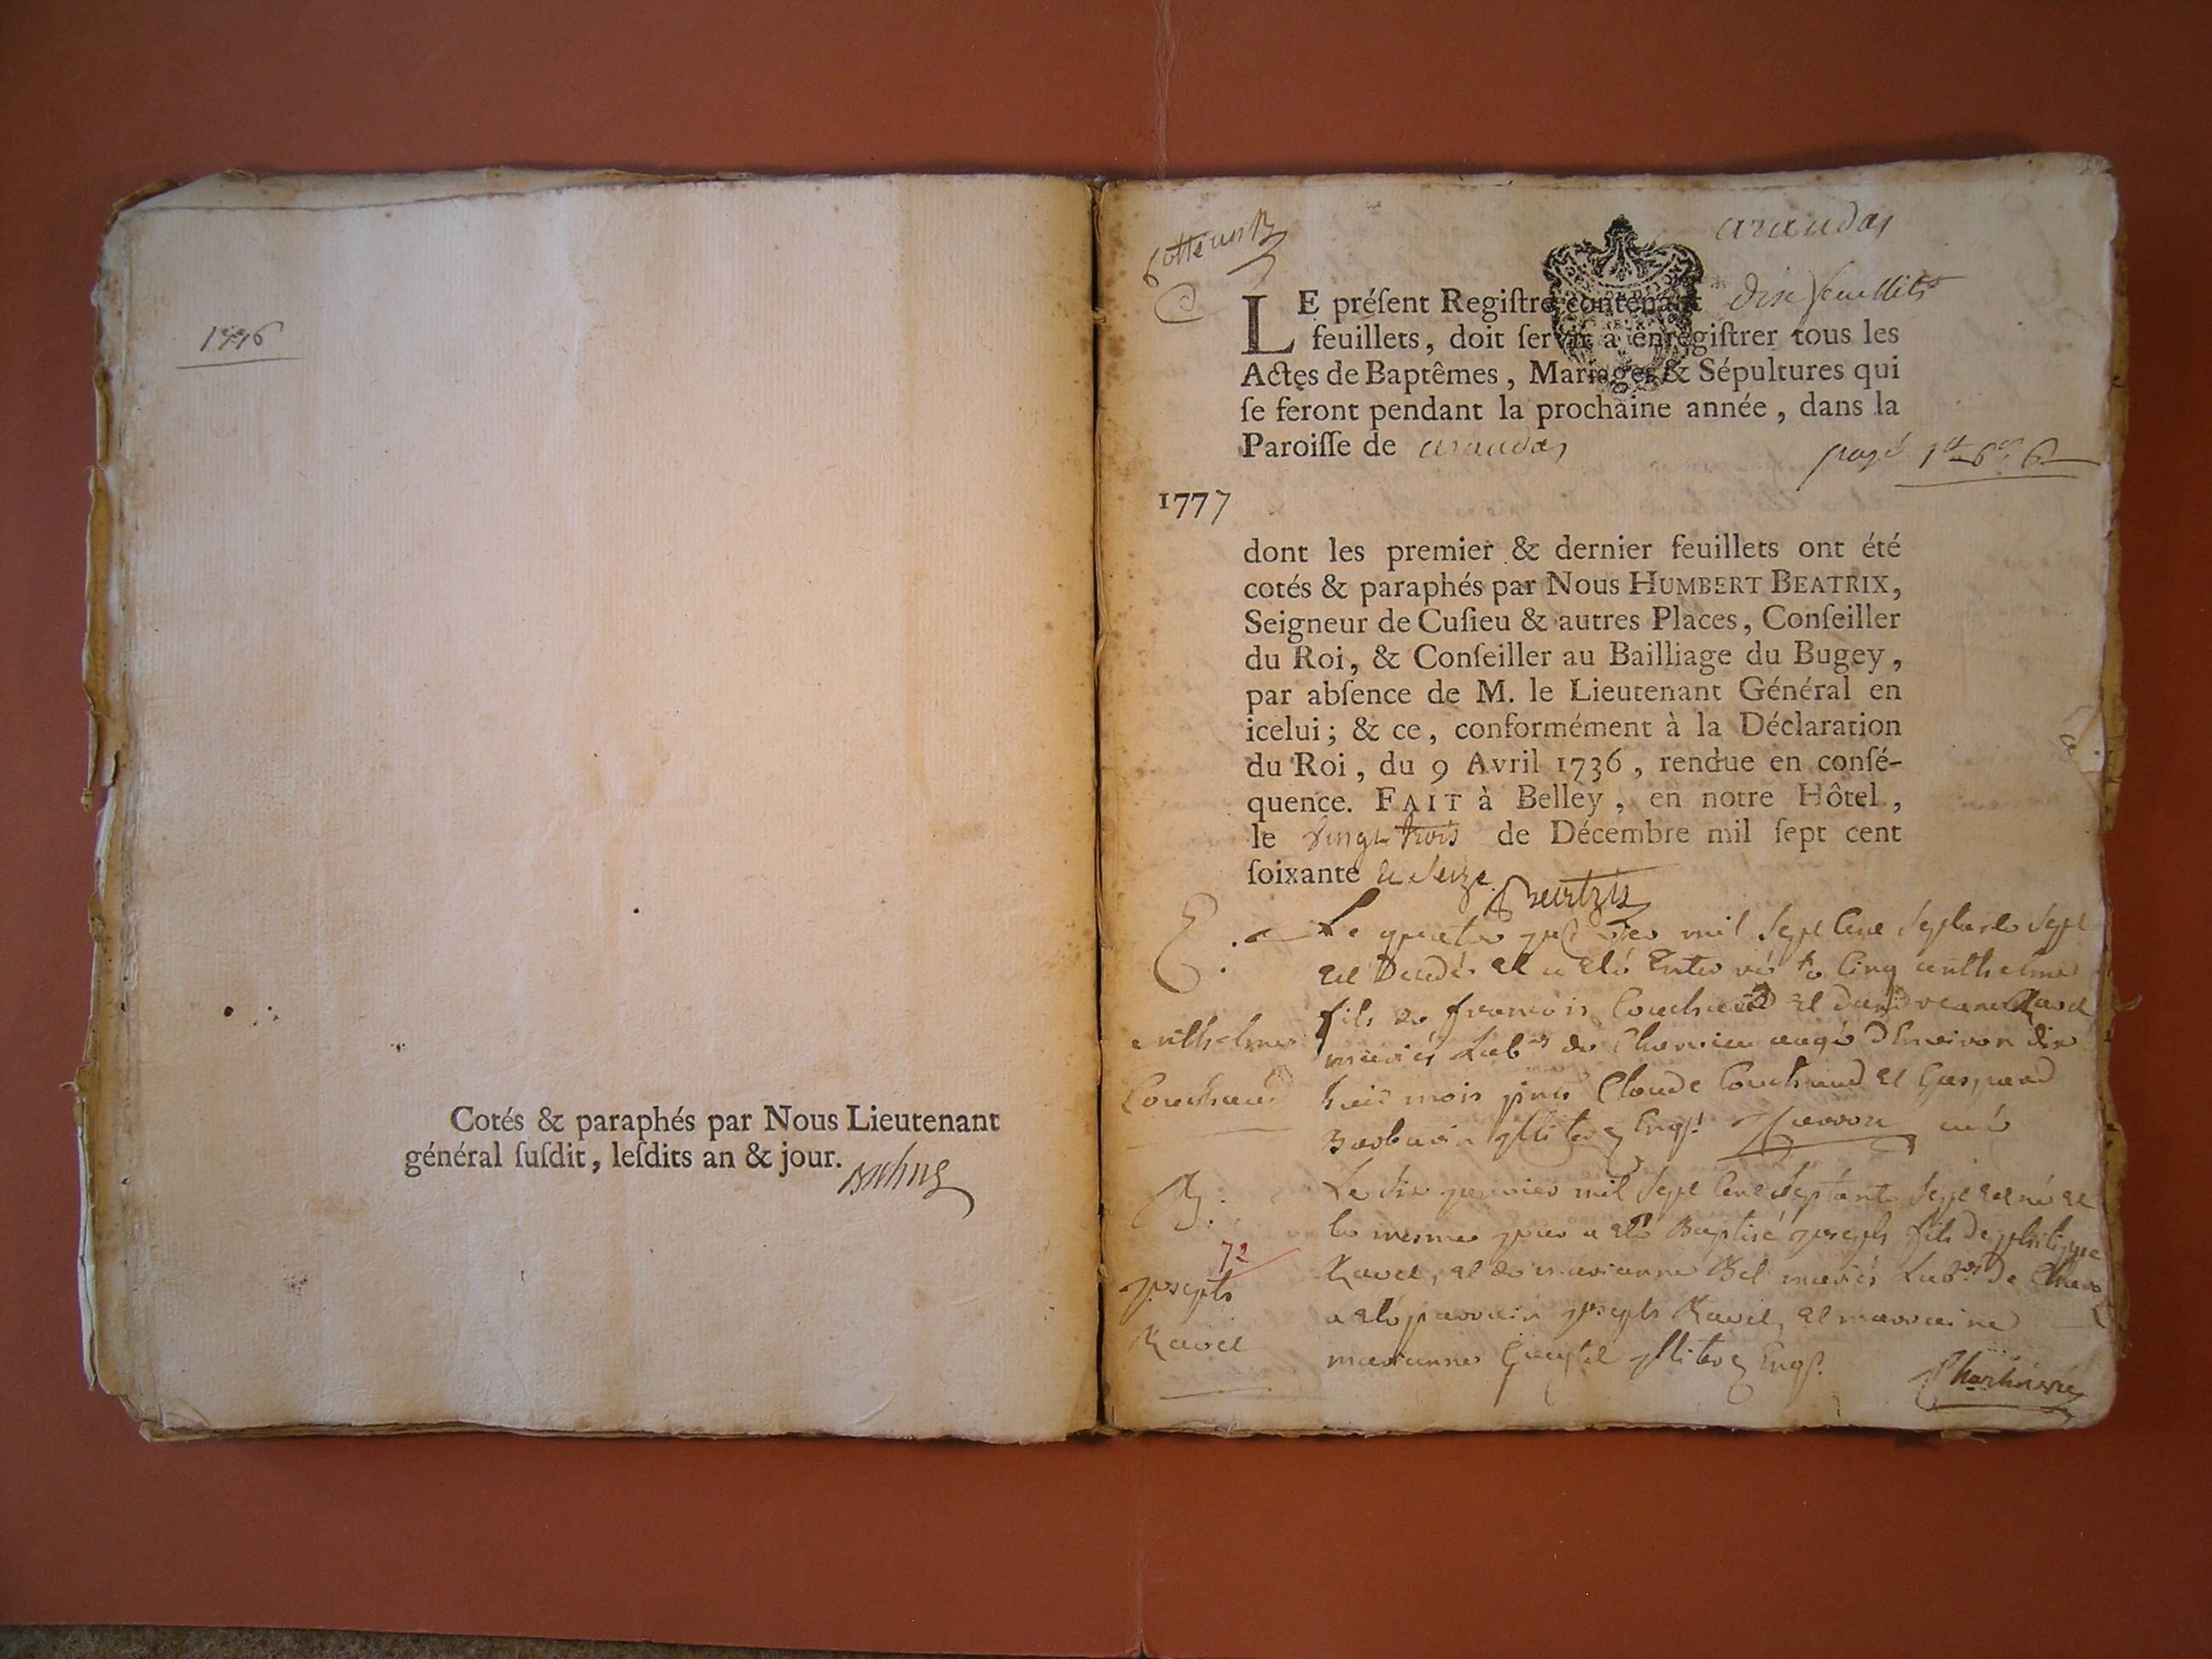 1776
Cotés & paraphés par Nous Lieutenant
général ſuſdit, leſdits an & jour.
araudas
LE préſent Regiſtre contenant dix feuillets
feuillets, doit ſervir à enregiſtrer tous les
Actes de Baptêmes, Mariages & Sépultures qui
ſe feront pendant la prochaine année, dans la
Paroiſſe de araudas
payé
1777
dont les premier & dernier feuillets ont été
cotés & paraphés par Nous HUMBERT BEATRIX,
Seigneur de Cuſieu & autres Places, Conſeiller
du Roi, & Conſeiller au Bailliage du Bugey,
par abſence de M. le Lieutenant Général en
icelui; & ce, conformément à la Déclaration
du Roi, du 9 Avril 1736, rendue en conſé-
quence. FAIT à Belley, en notre Hôtel,
le vingt trois de Décembre mil ſept cent
ſoixante et seize
Le quatre mil sept cent septante sept
est décédé et a été enterré le cinq anthelme
fils de francois Couchaud et
mariés Lab.rs de agé d'environ dix
huit mois Claude Couchaud et Gaspard
anthelme
Couchaud
B.
Le dix janvier mil sept cent septante sept est né et
le mesme jour a été Baptisé joseph fils de philippe
Ravet, et de marianne Bel mariés Lab.rs de
a été parrain joseph Ravet, et marraine
marianne
72
joseph
Ravet